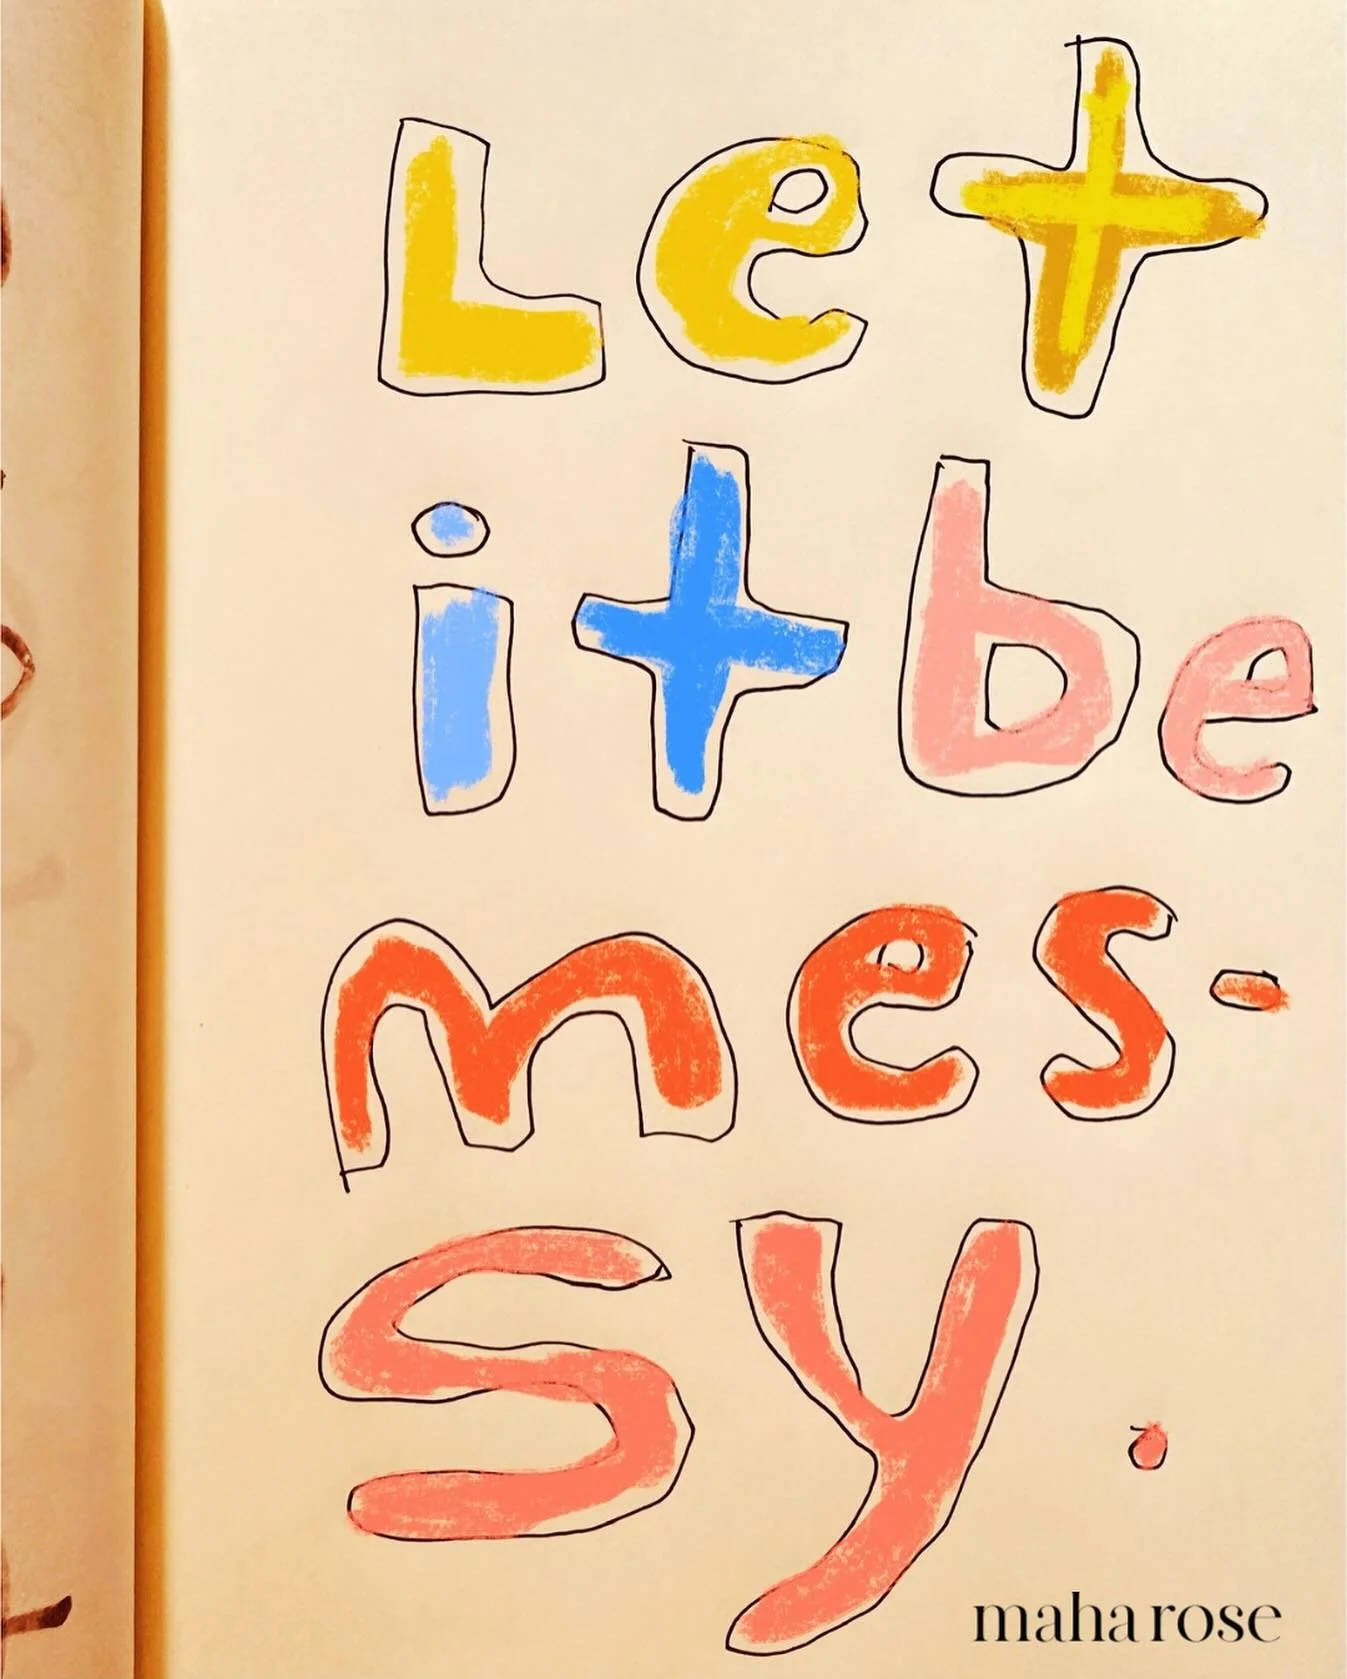 Let
it be
mes-
sy.
maha rose